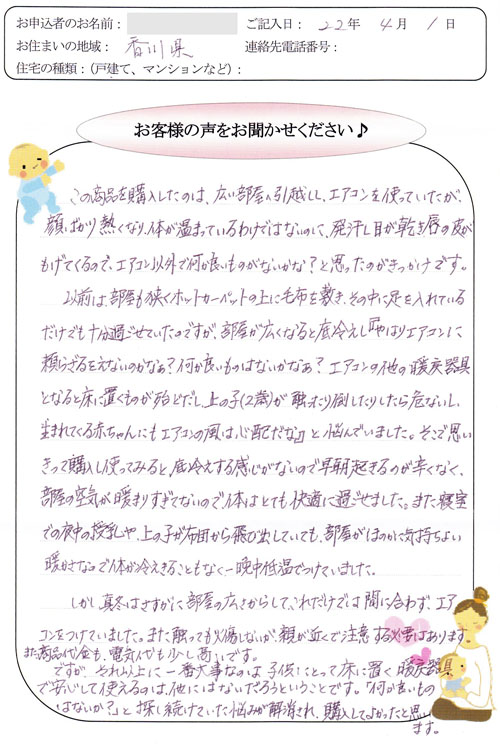 お申込者のお名前： ご記入日： 22年 4月 1日
お住まいの地域： 香川県 連絡先電話番号：
住宅の種類：（戸建て、マンションなど）：
お客様の声をお聞かせください♪
この商品を購入したのは、広い部屋へ引越しし、エアコンを使っていたが、
顔ばかり熱くなり、体が温まっているわけではないのに、発汗し目が乾き唇の皮が
もげてくるので、エアコン以外で何か良いものがないかな？と思ったのがきっかけです。
以前は、部屋も狭くホットカーペットの上に毛布を敷き、その中に足を入れている
だけでも十分過ごせていたのですが、部屋が広くなると底冷えし『やはりエアコンに
頼らざるをえないのかなぁ？何か良いものはないかなぁ？エアコンの他の暖房器具
となると床に置くものが殆どだし、上の子(2歳)が触ったり倒したりしたら危ないし、
生まれてくる赤ちゃんにもエアコンの風は心配だな』と悩んでいました。そこで思い
きって購入し使ってみると、底冷えする感じがないので早朝起きるのが辛くなく、
部屋の空気が暖まりすぎてないので体はとても快適に過ごせました。また寝室
での夜中の授乳や、上の子が布団から飛び出していても、部屋がほのかに気持ちよい
暖かさなので体が冷えきることもなく一晩中低温でつけていました。
しかし真冬はさすがに部屋の広さからして、これだけでは間に合わず、エア
コンをつけていました。また触っても火傷しないが、頬が近くで注意する必要はあります。
また商品代金も、電気代も少し高いです。
ですが、それ以上に一番大事なのは子供にとって床に置く暖房器具
で安心して使えるのは他にはないだろうということです。「何か良いもの
はないか？」と探し続けていた悩みが解消され、購入してよかったと思い
ます。